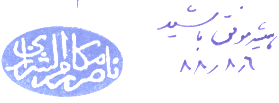 همیشه موفق باشید
۸۸/۸/۶
ناصر مکارم الشیرازی